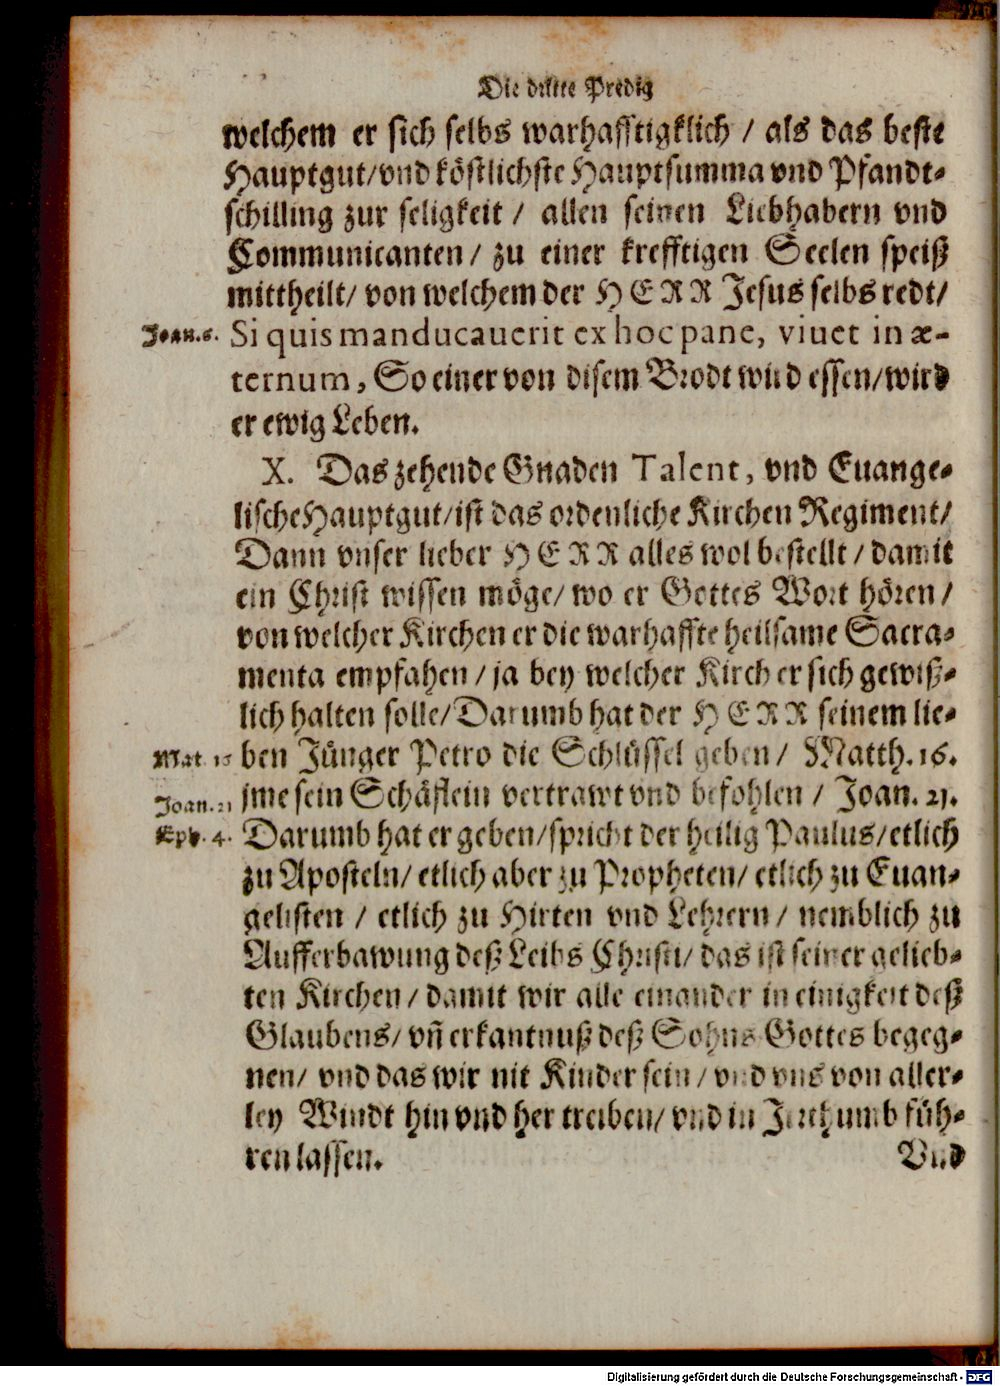 Die dritte Predig
welchem er sich selbs warhafftigklich / als das beste
Hauptgut/vnd köstlichste Hauptsumma vnd Pfandt-
schilling zur seligkeit / allen seinen Liebhabern vnd
Communicanten / zu einer krefftigen Seelen speiß
mittheilt/ von welchem der HERR Jesus selbs redt/
Joan.6. Si quis manducauerit ex hoc pane, viuet in æ-
ternum, So einer von disem Brodt wird essen/wird
er ewig Leben.
X. Das zehende Gnaden Talent, vnd Euange-
lische Hauptgut/ist das ordenliche Kirchen Regiment/
Dann vnser lieber HERR alles wol bestellt / damit
ein Christ wissen möge/ wo er Gottes Wort hören /
von welcher Kirchen er die warhaffte heilsame Sacra-
menta empfahen / ja bey welcher Kirch er sich gewiß-
lich halten solle/Darumb hat der HERR seinem lie-
Mat. 15 ben Jünger Petro die Schlüssel geben / Matth. 16.
Joan. 21 jme sein Schäflein vertrawt vnd befohlen / Joan. 21.
Eph. 4. Darumb hat er geben/spricht der heilig Paulus/etlich
zu Aposteln/ etlich aber zu Propheten/ etlich zu Euan-
gelisten / etlich zu Hirten vnd Lehrern / nemblich zu
Aufferbawung deß Leibs Christi/ das ist seiner gelieb-
ten Kirchen / damit wir alle einander in einigkeit deß
Glaubens/ vñ erkantnuß deß Sohns Gottes begeg-
nen/ vnd das wir nit Kinder sein / vnd vns von aller-
ley Windt hin vnd her treiben/ vnd in Jrrthumb füh-
ren lassen.
Vnd
Digitalisierung gefördert durch die Deutsche Forschungsgemeinschaft - DFG